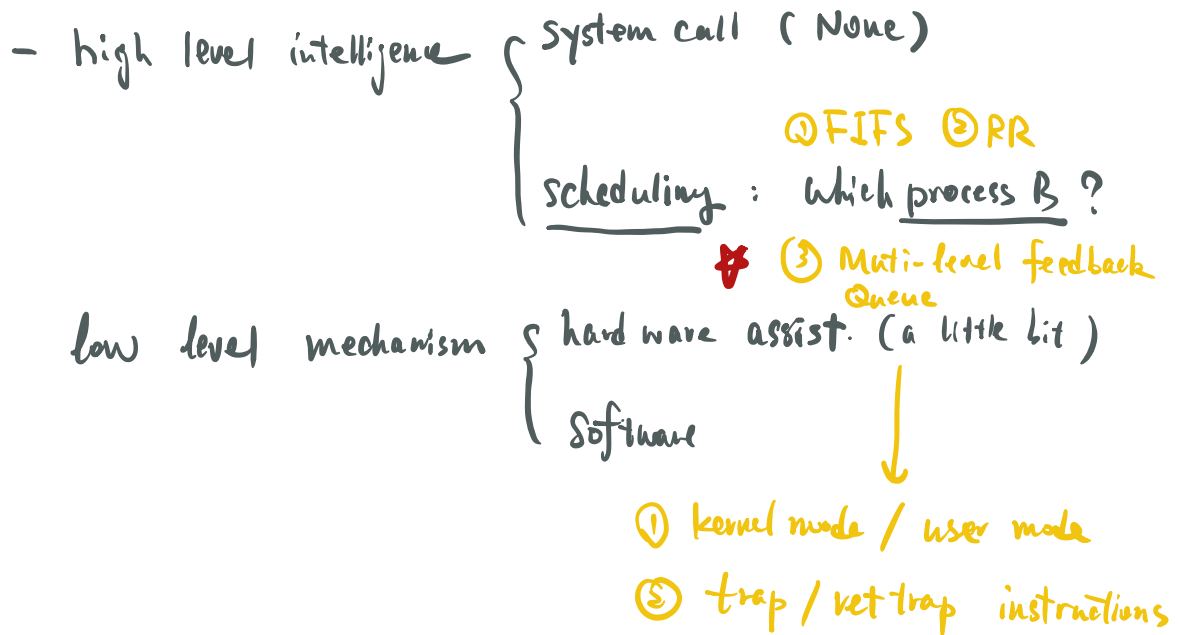 - high level intelligence { system call (None)
① FIFS ② RR
scheduling : which process B ?
③ Muti-level feedback
Queue
low level mechanism { hardware assist. (a little bit)
software
① kernel mode / user mode
② trap / ret trap instructions